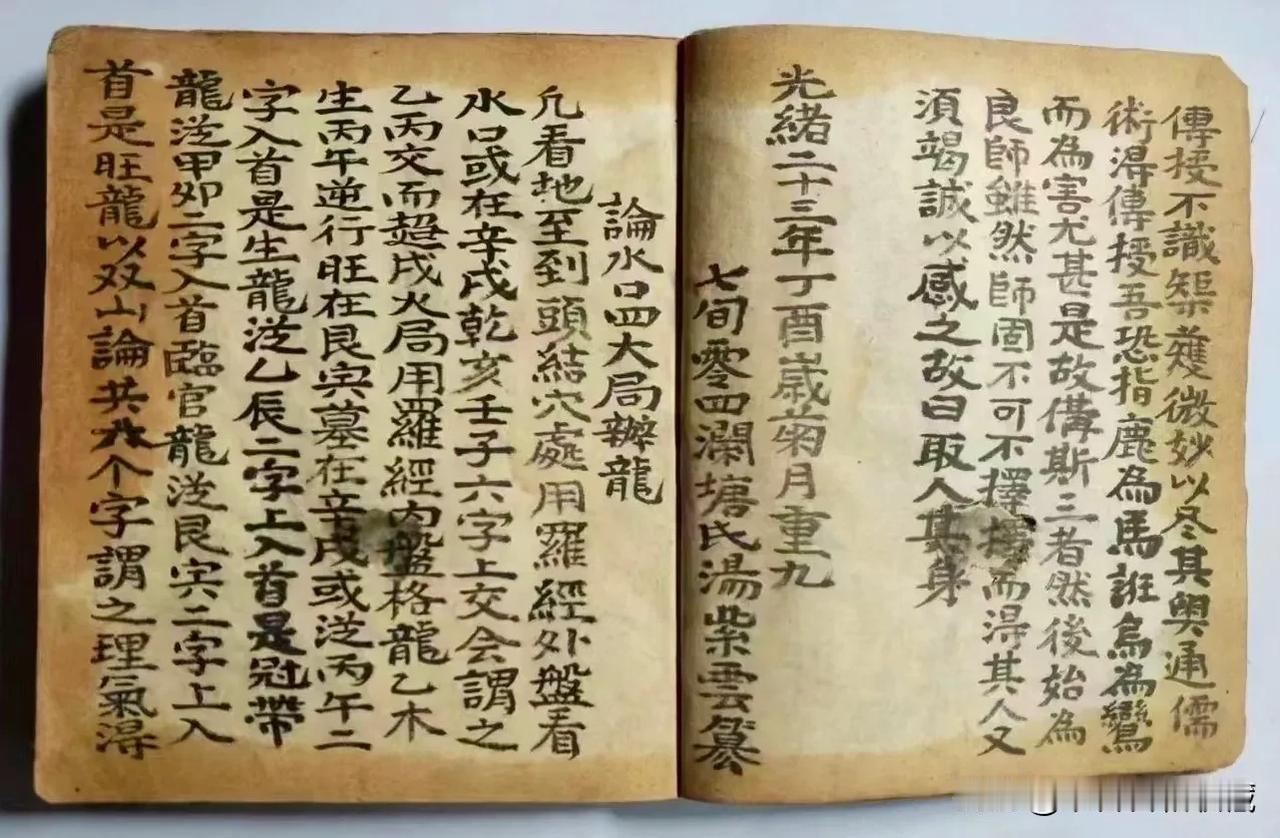 傳授不識榘蒦微妙以尽其奧通儒
術淂傳授吾恐指鹿為馬誑鳥為鸞
而為害尤甚是故俻斯三者然後始為
良師雖然師固不可不擇擇而淂其人又
須竭誠以感之故曰取人其身
光緒二十三年丁酉歲菊月重九
七旬零四瀾塘氏湯紫雲纂
論水口四大局辦龍
凢看地至到頭結穴處用羅經外盤看
水口或在辛戌乾亥壬子六字上交会謂之
乙丙交而趨戌火局用羅經內盤格龍乙木
生丙午逆行旺在艮寅墓在辛戌或從丙午二
字入首是生龍從乙辰二字上入首是冠帶
龍從甲卯二字入首臨官龍從艮寅二字上入
首是旺龍以双山論共八个字謂之理氣淂
藏